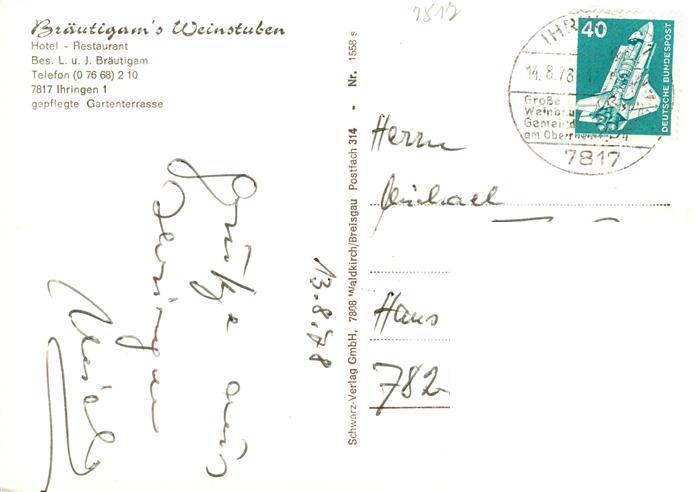 Bräutigam's Weinstuben
Hotel - Restaurant
Bes. L. u. J. Bräutigam
Telefon (0 76 68) 2 10
7817 Ihringen 1
gepflegte Gartenterrasse
Grüße aus
Ihringen
13.8.78
Schwarz-Verlag GmbH, 7808 Waldkirch/Breisgau Postfach 314 - Nr. 1558 s
7817
IHR
14.8.78
Große
Weinbau
Gemeinde
am Oberrhein
7817
40
DEUTSCHE BUNDESPOST
Herrn
Michael
Hans
782